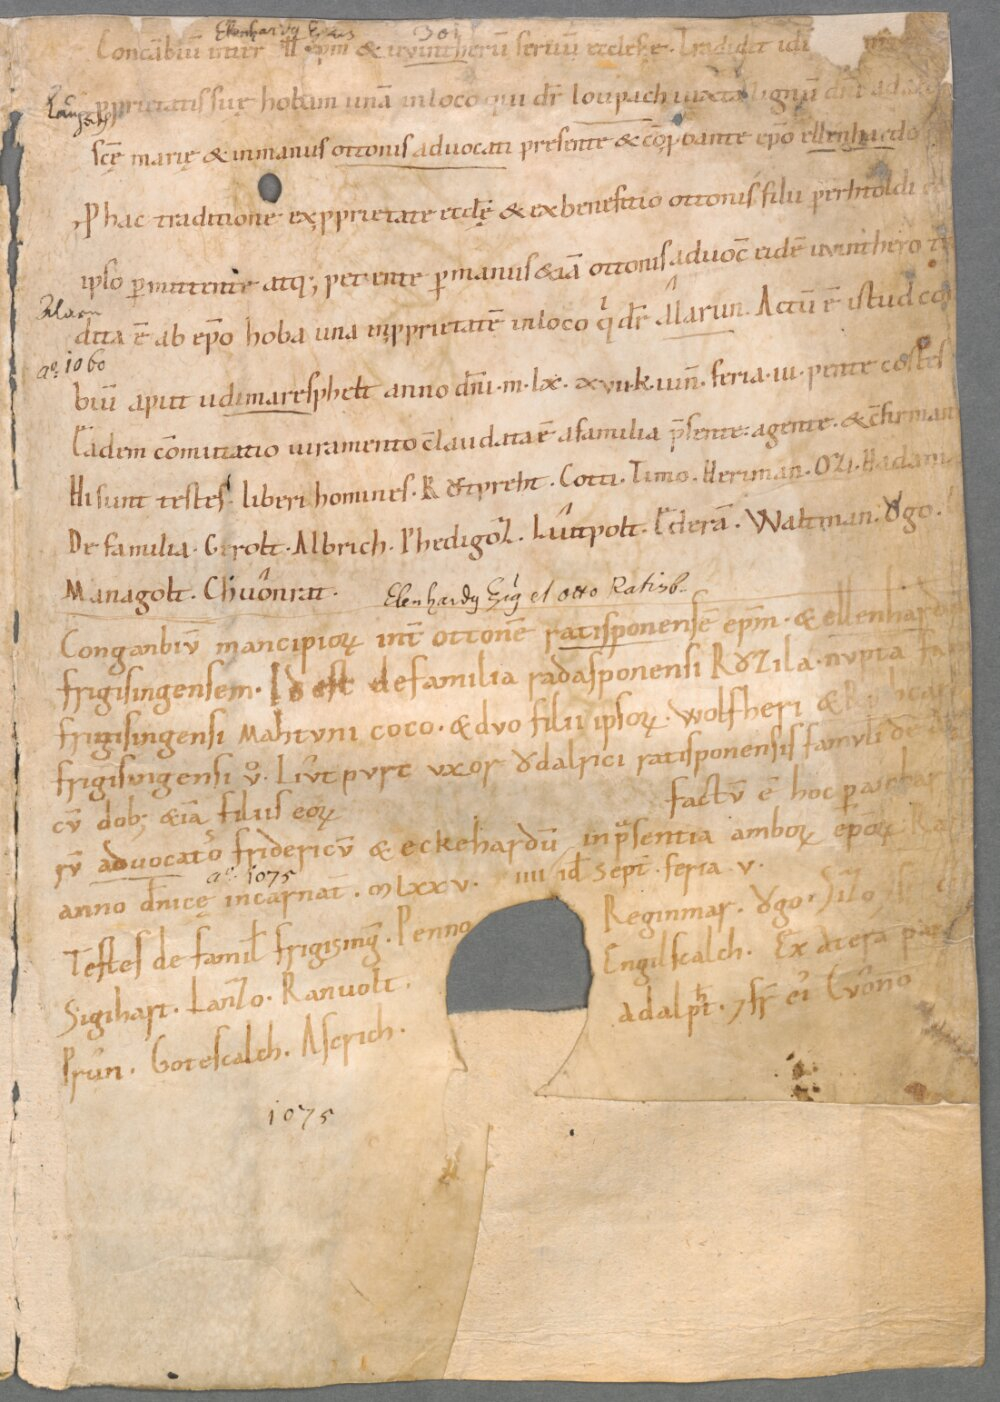 Ekenhardy Epūs 301
Concābiū inter .E. epm & uvintherū seruū ecclesie. Tradidit idē
pprietatis suę hobam unā in loco qui dr̄ loupach iuxta lignū dn̄i ad al
Laupach
scę marię & in manus ottonis aduocati presente & cōpbante ep̄o ellenhardo
P hac traditione ex pprietate ecclę & ex benefitio ottonis filii perhtoldi
ipso pmittente atq; petente p manus & iā ottonis aduoc̄ eidē uvinthero
Alarn
dita ē ab ep̄o hoba una in pprietatē in loco q̇ dr̄ Alarun. Actū ē istud cō
aº. 1060
biū aput udimaresphelt anno dn̄i m. lx. xvii. k. iun̄. feria. iii. pentecostes
Eadem cōmutatio iuramento claudata ē a familia p̄sente. agente. & cfirman
Hi sunt testes. liberi homines. R&tpreht. Cotti. Timo. Heriman. Ozi. Hadam
De familia. Gerolt. Albrich. Phedigolz. Liutpolt. Ederā. Waltman. Ȣgo.
Managolt. Chuonrat.
Elenhardy Frig et Otto Ratisb.
Conganbiū mancipiorꝝ int̄ ottonē ratisponensē ep̄m. & ellenhardū
frigisingensem. Id est de familia radasponensi RȢzila. nupta
frigisingensi Mahtuni coco. & duo filii ipsorꝝ. Wolfheri &
frigisingensi v̊. Liutpurc uxor Ȣdalrici ratisponensis famuli de
cū dob; & iā filiis eorꝝ factū ē hoc p
rū aduocatos fridericū & eckehardū in p̄sentia amborꝝ ep̄orꝝ
aº. 1075
anno dn̄icę incarnat̄. mlxxv. iiii id̄ sept̄. feria v.
Testes de famil̄ frigising. Penno Reginmar. Ȣgo. Silo
Sigihart. Lanzo. Ranuolt. Engilscalch. Ex altera par
Prun. Gotescalch. Ascrich. Adalpt. 7 fr̄ ei Cuōno
1075